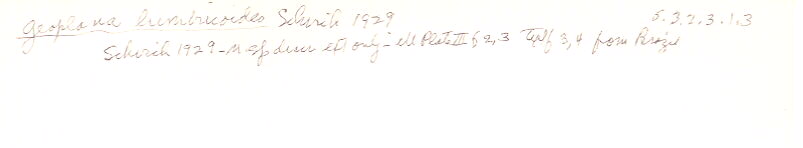 Geoplana lumbricoides Schirch 1929 5.3.2.3.1.3
Schirch 1929 - n sp descr ext only - ill Plate III f 2, 3 f 3, 4 from Brazil